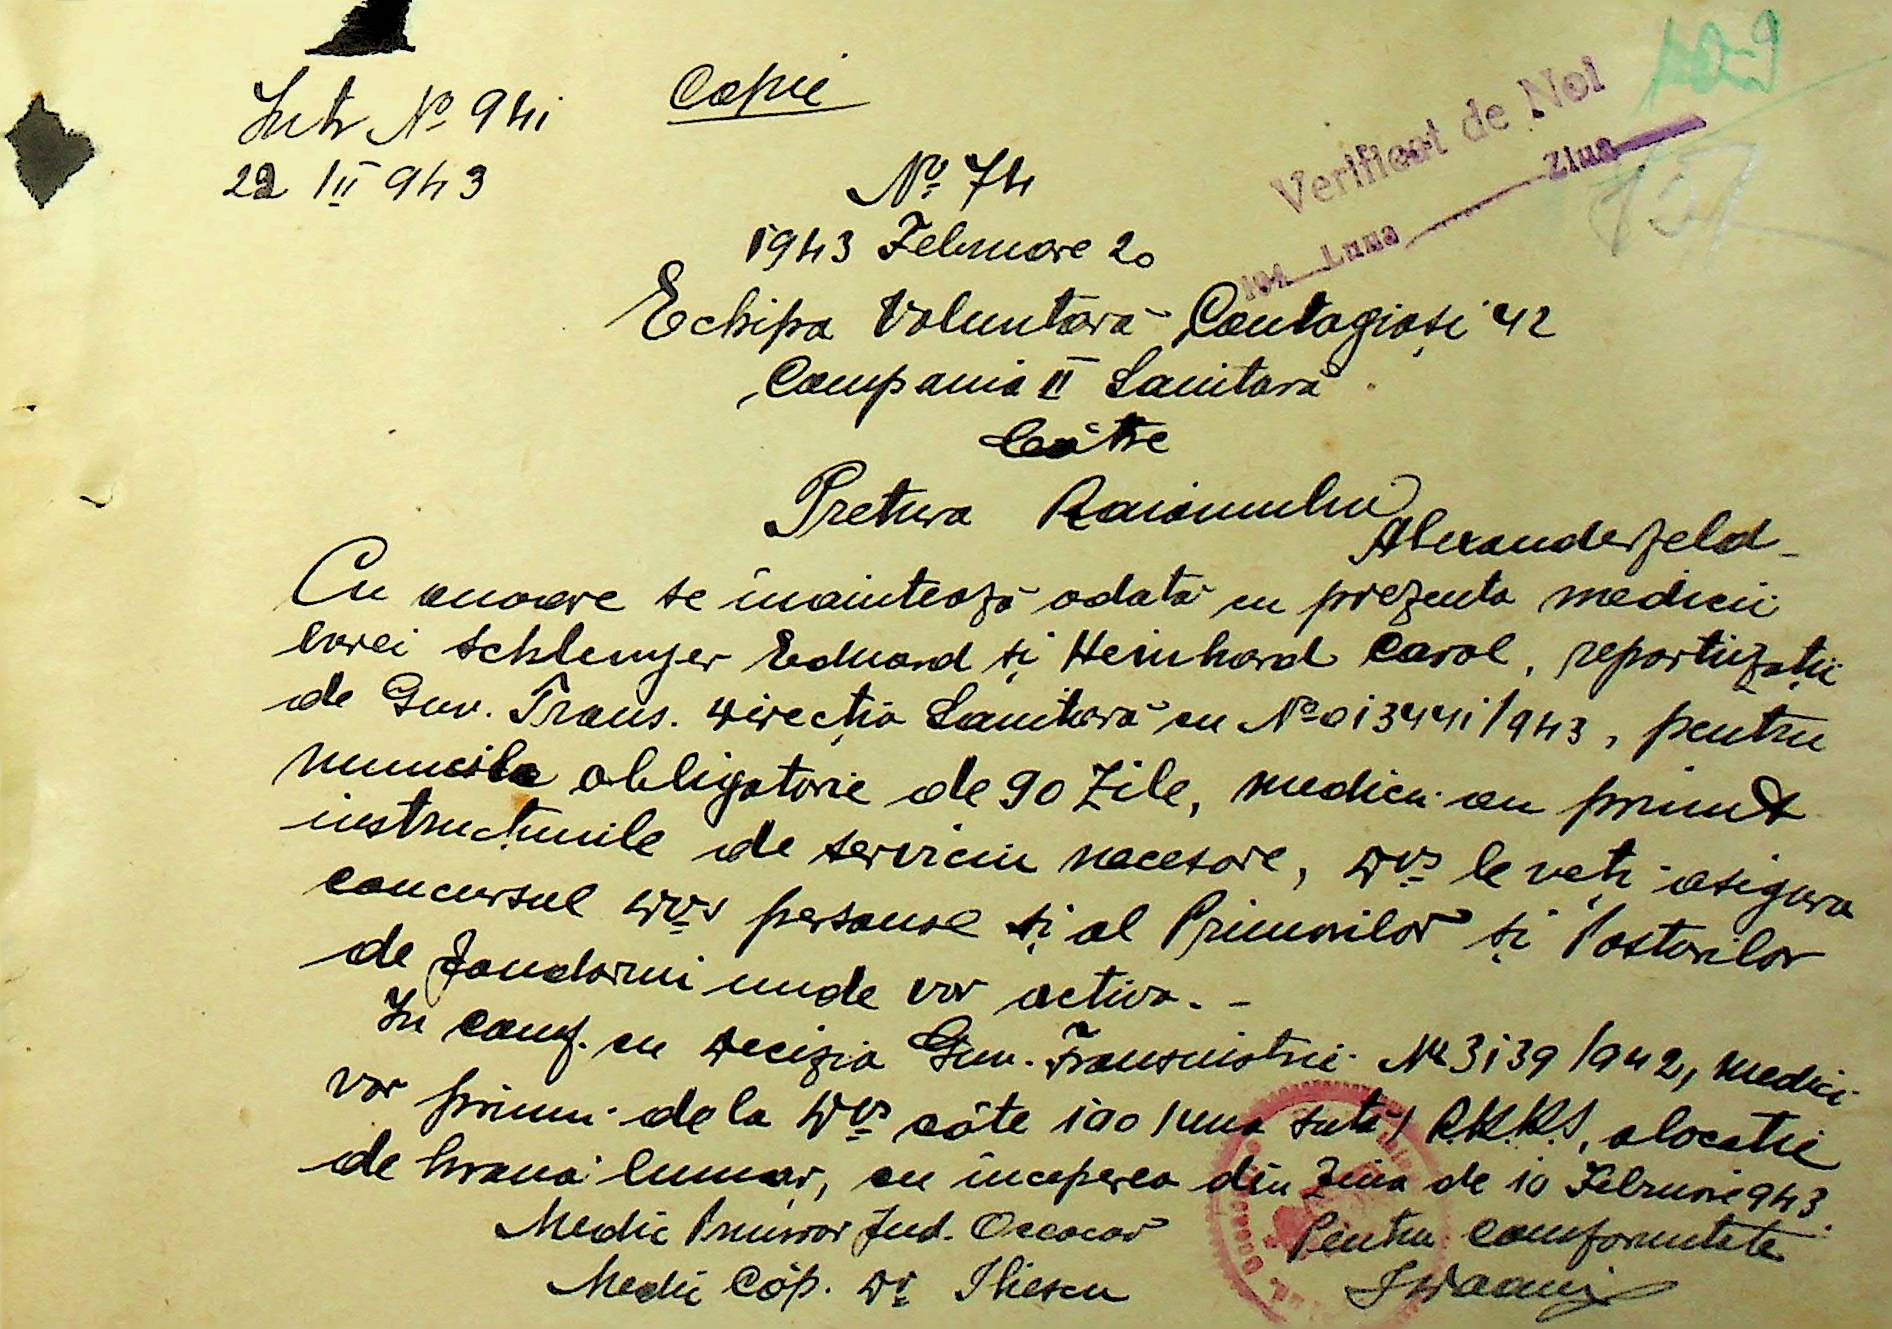 Intr No 941
22 III 943
Copie
Verificat de Noi
194 Luna Ziua
No. 74
1943 Februare 20
Echipa Voluntară Contagioși 42
Compania II Sanitară
Către
Pretura Raionului
Alexanderfeld
Cu onoare se înaintează odată cu prezenta medicii
evrei Schlenger Eduard și Heinhard Carol, repartizați
de Guv. Trans. Direcția Sanitară cu No 013441/943, pentru
munca obligatorie de 90 zile, medicii au primit
instrucțiunile de serviciu necesare, Dvs le veți asigura
concursul Dvs personal și al Primarilor și Posturilor
de Jandarmi unde vor activa. -
In conf. cu Decizia Guv. Transnistriei Nr 3139/942, medici
vor primi de la Dvs câte 100 /una sută/ RKKS, alocație
de hrană lunar, cu începerea din Ziua de 10 Februarie 943.
Medic Primar Jud. Oceacov
Medic Căp. Dr Iliescu
Pentru conformitate